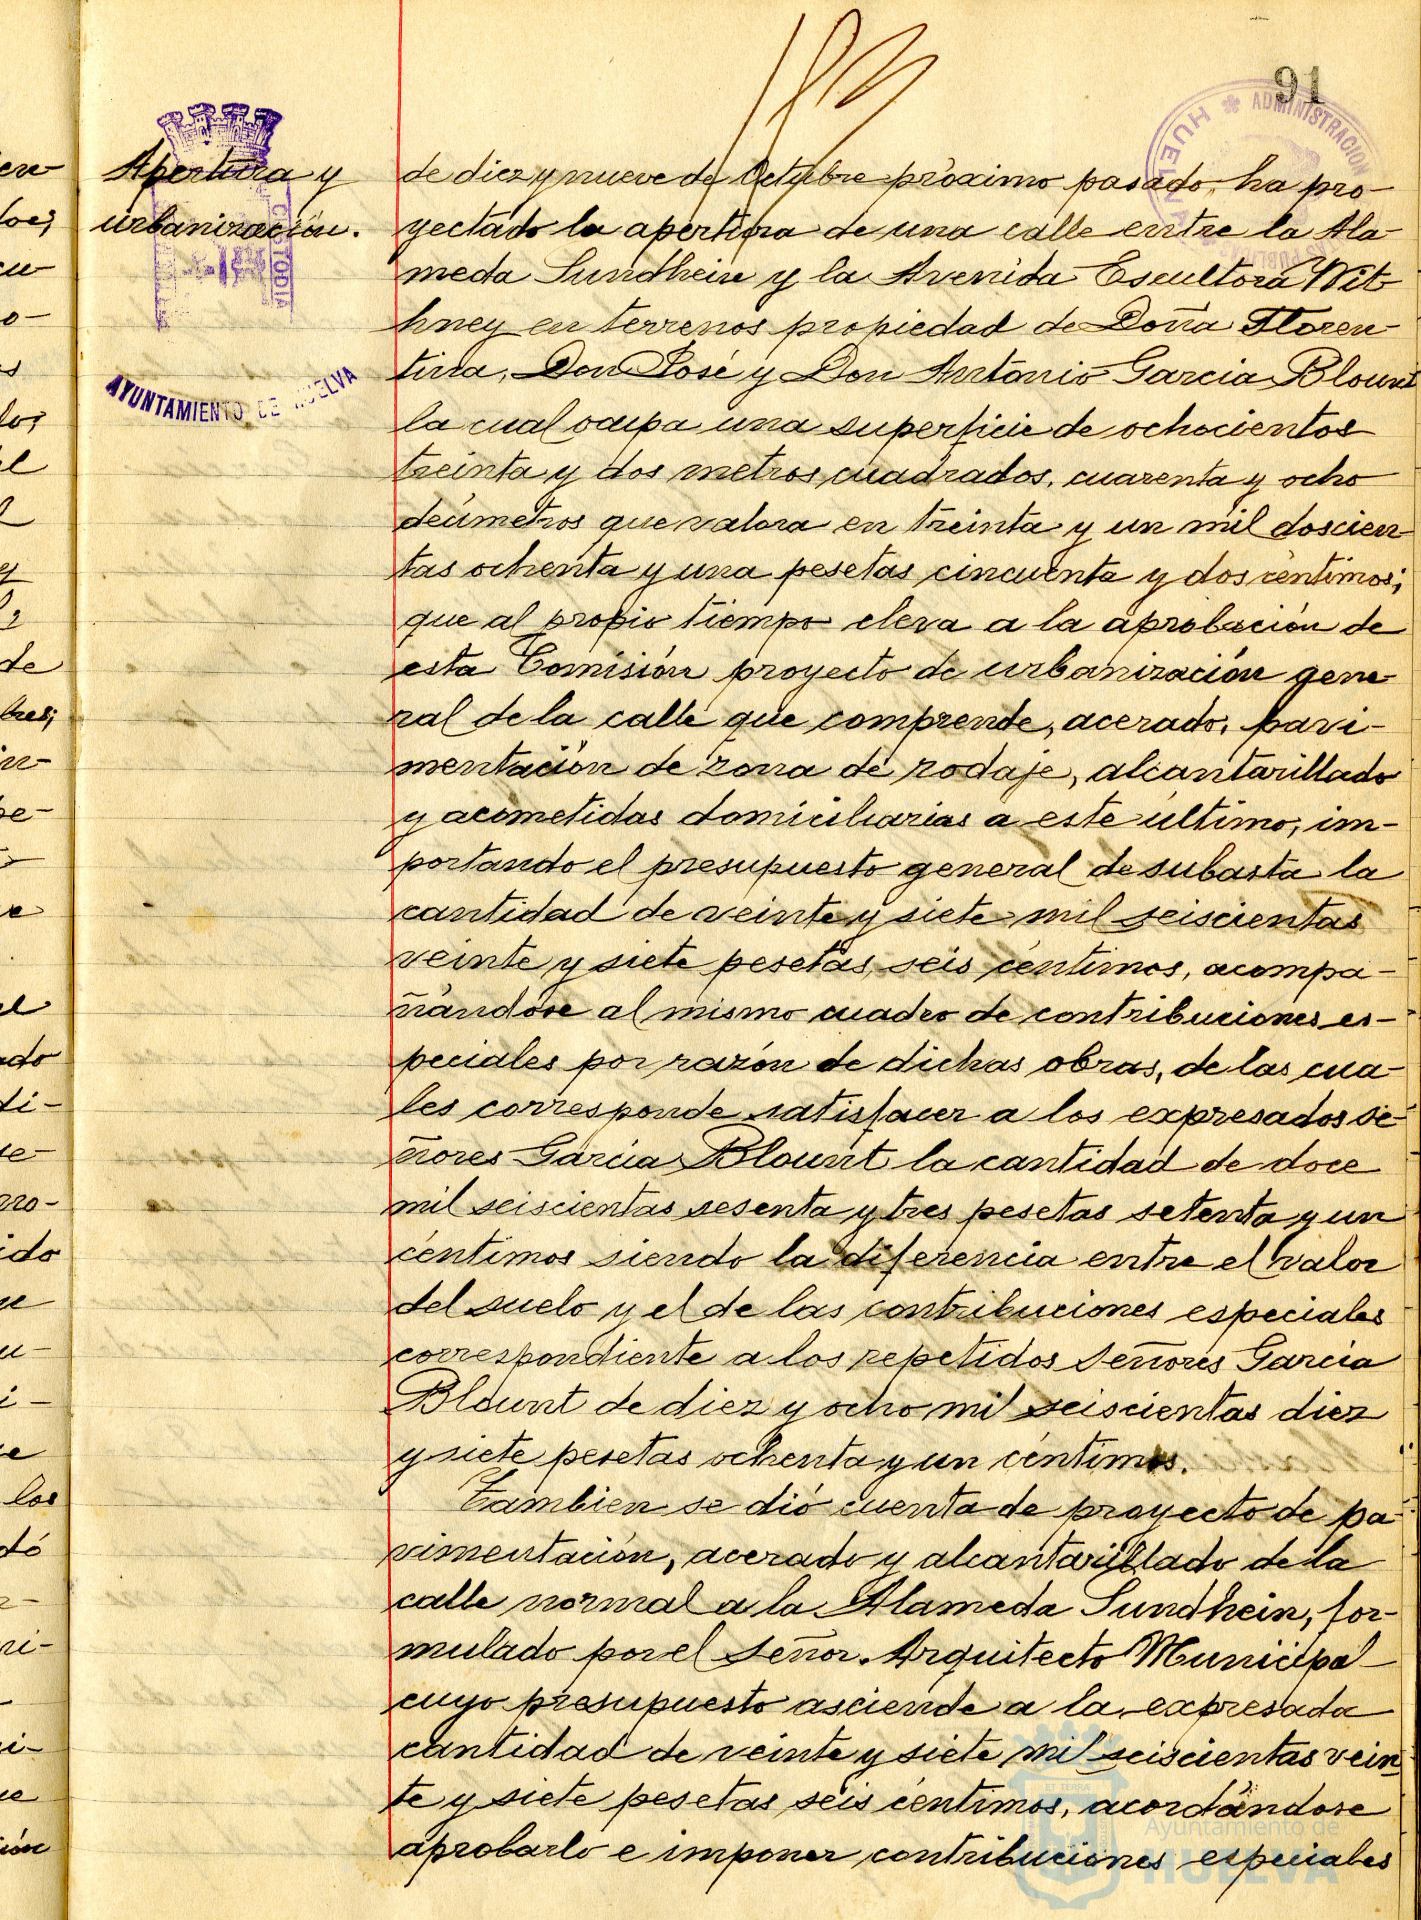 91
ADMINISTRACION
HUELVA
CUSTODIA
AYUNTAMIENTO DE HUELVA
Apertura y
urbanización.
de diez y nueve de Octubre próximo pasado, ha pro-
yectado la apertura de una calle entre la Ala-
meda Sundhein y la Avenida Escultora Wit-
hney en terrenos propiedad de Doña Floren-
tina, Don José y Don Antonio Garcia Blount
la cual ocupa una superficie de ochocientos
treinta y dos metros cuadrados, cuarenta y ocho
decímetros que valora en treinta y un mil doscien-
tas ochenta y una pesetas cincuenta y dos céntimos;
que al propio tiempo eleva a la aprobación de
esta Comisión proyecto de urbanización gene-
ral de la calle que comprende, acerado, pavi-
mentación de zona de rodaje, alcantarillado
y acometidas domiciliarias a este último, im-
portando el presupuesto general de subasta la
cantidad de veinte y siete mil seiscientas
veinte y siete pesetas, seis céntimos, acompa-
ñándose al mismo cuadro de contribuciones es-
peciales por razón de dichas obras, de las cua-
les corresponde satisfacer a los expresados se-
ñores Garcia Blount la cantidad de doce
mil seiscientas sesenta y tres pesetas setenta y un
céntimos siendo la diferencia entre el valor
del suelo y el de las contribuciones especiales
correspondiente a los repetidos señores Garcia
Blount de diez y ocho mil seiscientas diez
y siete pesetas ochenta y un céntimos.
Tambien se dió cuenta de proyecto de pa-
vimentación, acerado y alcantarillado de la
calle normal a la Alameda Sundhein, for-
mulado por el señor Arquitecto Municipal
cuyo presupuesto asciende a la expresada
cantidad de veinte y siete mil seiscientas vein-
te y siete pesetas seis céntimos, acordándose
aprobarlo e imponer contribuciones especiales
Ayuntamiento de
HUELVA